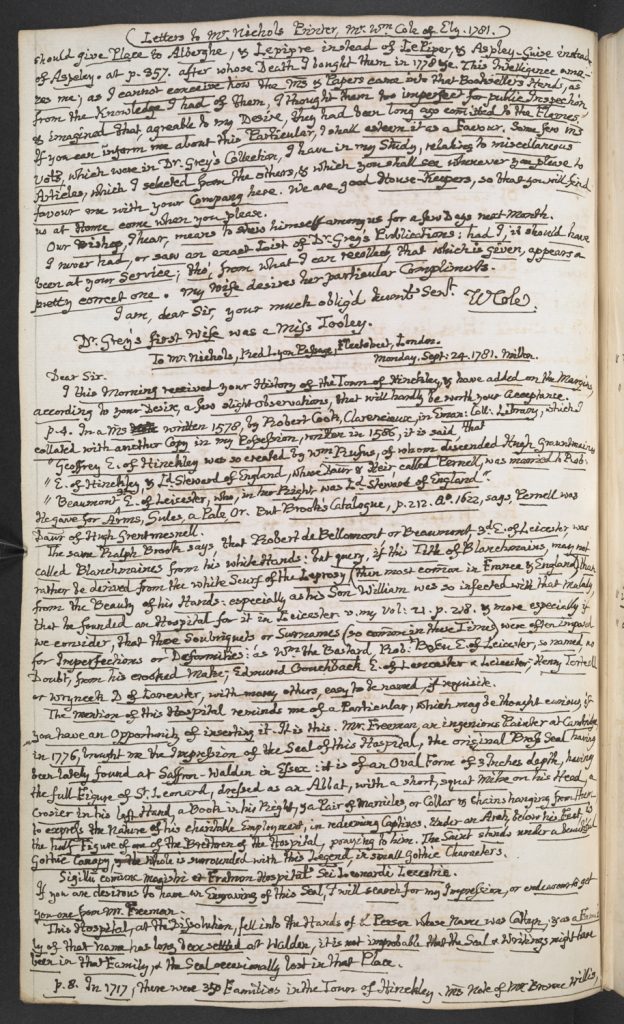 (Letters to Mr. Nichols Printer, Mr. Wm. Cole of Ely. 1781.)
should give Place to Alberghe, & Lepipre instead of LePiper, & Aspley-Guise instead
of Aspeley. at p. 357. after whose Death I bought them in 1778 &c. This Intelligence ama-
zes me; as I cannot conceive how the MS & Papers came into that Bookseller's Hands, as
from the Knowledge I had of them, I thought them too imperfect for public Inspection
& imagined that agreable to my Desire, they had been long ago comitted to the Flames.
If you can inform me about this Particular, I shall esteem it as a Favour. Some few MS
Vols, which were in Dr. Grey's Collection, I have in my Study, relating to miscellaneous
Articles, which I selected from the others, & which you shall see whenever you please to
favour me with your Company here. We are good House-Keepers, so that you will find
us at Home come when you please.
Our Bishop, I hear, means to shew himself among us for a few Days next Month.
I never had, or saw an exact List of Dr. Grey's Publications: had I, it should have
been at your Service; tho', from what I can recollect, that which is given, appears a
pretty correct one. My Wife desires her particular Compliments.
I am, dear Sir, your much oblig'd humb. Servt. W Cole.
Dr. Grey's first Wife was a Miss Tooley.
To Mr. Nichols, Red Lyon Passage, Fleetstreet, London.
Monday, Sept: 24. 1781. Milton.
Dear Sir.
I this Morning received your History of the Town of Hinckley, & have added on the Margin,
according to your Desire, a few slight observations, that will hardly be worth your Acceptance.
p. 4. In a MS written 1578, by Robert Cook, Clarencieux, in Eman: Coll: Library, which I
collated with another Copy in my Possession, written in 1586, it is said that
"Geoffrey E. of Hinckley was so created by Wm. Rufus, of whom discended Hugh Grundmaines
" E. of Hinckley & Ld. Steward of England, whose Daur & Heir called Pernell, was married to Rob:
" Beaumont 3d E. of Leicester, who, in her Right was Ld. Steward of England."
He gave for Arms, Gules, a Pale, Or. But Brook's Catalogue, p. 212. Ao. 1622, says, Pernell was
Daur of Hugh Grentmesnell.
The same Ralph Brook says, that Robert de Bellomont or Beaumont, 3d E. of Leicester, was
called Blanchmaines from his white Hands: but query, if this Title of Blanchmains, may not
rather be derived from the white Scurf of the Leprosy (then most comon in France & England) than
from the Beauty of his Hands: especially as his Son William was so infected with that Malady,
that he founded an Hospital for it in Leicester. v. my Vol: 21. p. 218. & more especially if
we consider, that these Soubriquets or Surnames (so comon in those Times) were often imposed
for Imperfections or Deformities: as Wm. the Bastard, Rob: Bossu E. of Leicester, so named, no
Doubt, from his crooked Make; Edmund Crouchback E. of Lancaster & Leicester; Henry Torticoll
or wryneck D. of Lancaster, with many others, easy to be named, if requisite.
The mention of this Hospital reminds me of a Particular, which may be thought curious, if
you have an Opportunity of inserting it. It is this. Mr. Freeman, an ingenious Painter at Cambridge
in 1776, brought me the Impression of the Seal of this Hospital, the original Brass Seal having
been lately found at Saffron-Walden in Essex: it is of an Oval Form of 3 Inches depth, having
the full Figure of St. Leonard, dressed as an Abbat, with a short, squat Mitre on his Head, a
Crosier in his left Hand, a Book in his Right, & a Pair of Manicles, or Collar & Chains hanging from them
to express the Nature of his charitable Employment, in redeeming Captives. Under an Arch below his Feet, is
the half Figure of one of the Brethren of the Hospital, praying to him. The Saint stands under a beautiful
Gothic Canopy, & the whole is surrounded with this Legend, in small Gothic Characters.
Sigillu comune magistri et Fratrum Hospitalis Sci Leonardi Leicestrie.
If you are desirous to have an Engraving of this Seal, I will search for my Impression, or endeavour to get
you one from Mr. Freeman.
This Hospital, at the Dissolution, fell into the Hands of a Person whose Name was , & as a Fami-
ly of that Name has long been settled at Walden, it is not improbable that the Seal & Writings might have
been in that Family, & the Seal occasionally lost in that Place.
p. 8. In 1717, there were 350 Families in the Town of Hinckley. MS Note of Mr. Browne Willis,